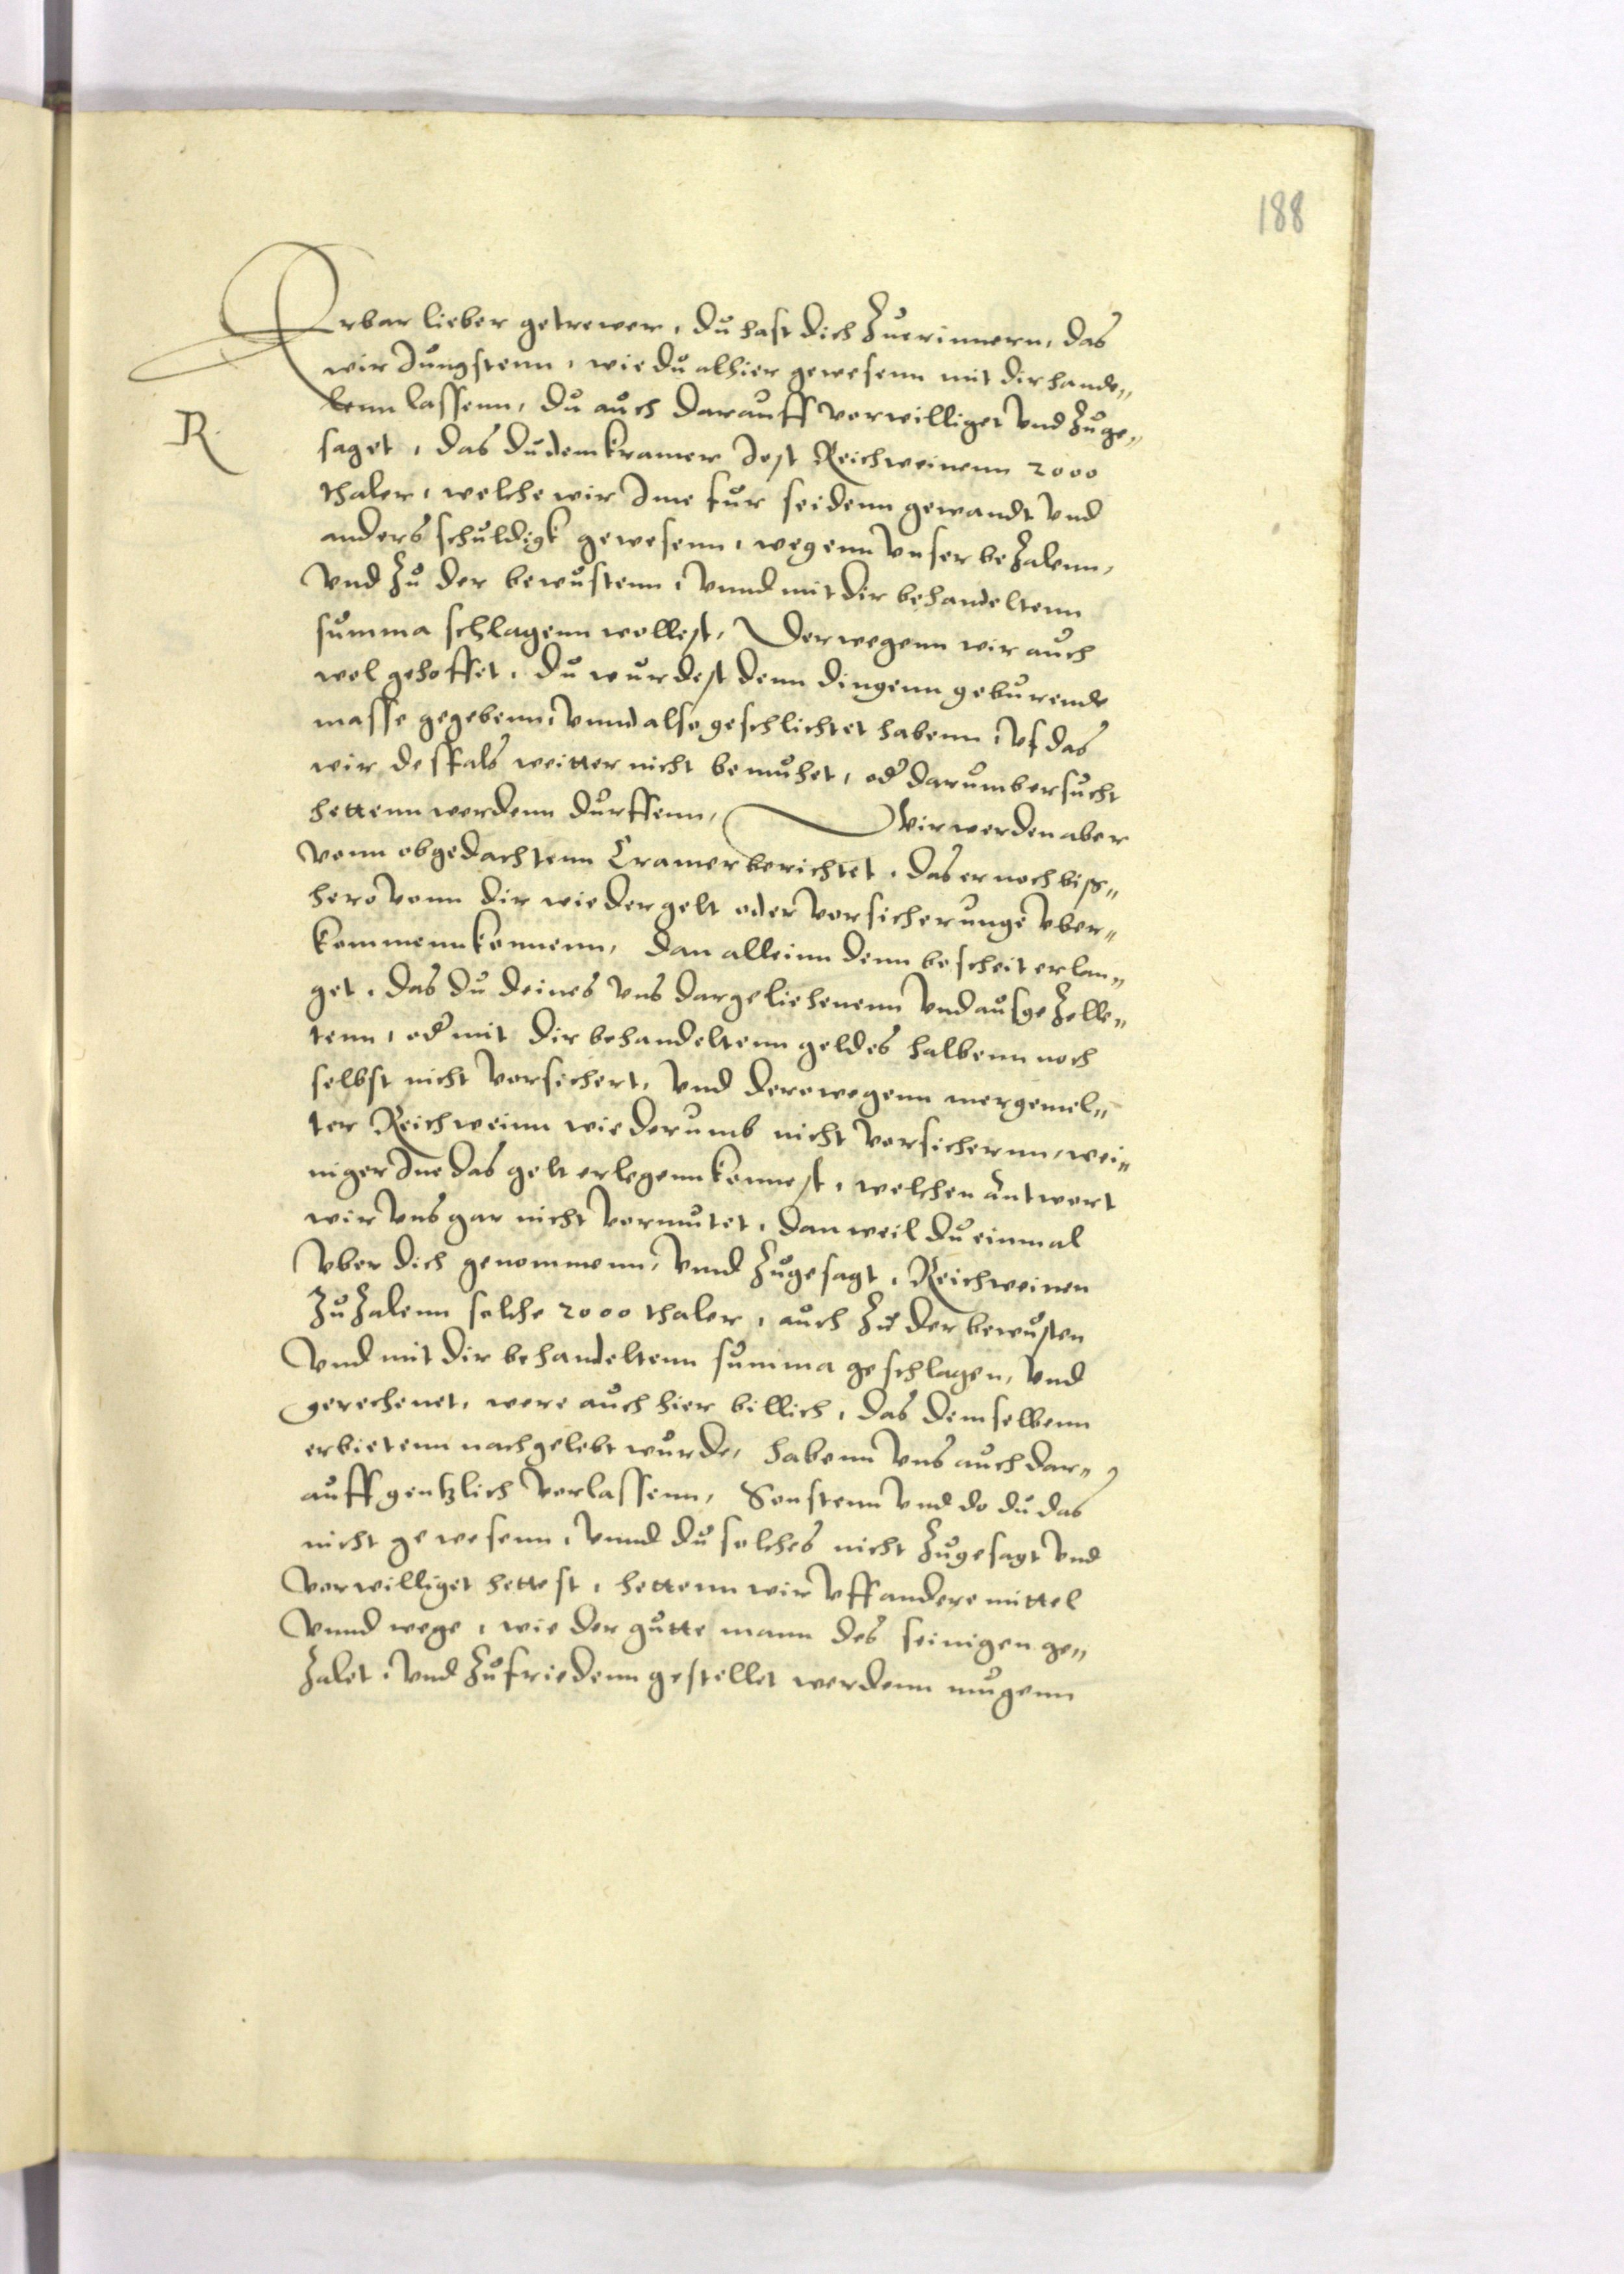 188
Erbar lieber getrewer, du hast dich Zuerinnern, das
wir Jungstenn, wie du alhier gewesenn mit dir hande„
lenn lassenn, du auch darauff verwilliget vnd Zuge„
R
saget, das du dem kramer Jost Reichweinenn 2000
thaler, welche wir Ime fur seidenn gewandt vnd
anders schuldigk gewesenn, wegenn vnser beZalenn,
vnd Zu der bewustenn, vnnd mit dir behandeltenn
summa schlagenn wollest, Derwegenn wir auch
wol gehoffet, du wurdest denn dingenn geburende
masse gegebenn, vnnd also geschlichtet habenn, vf das
wir desfals weitter nicht bemuhet, oder darumb ersucht
hettenn werdenn durffenn, Wir werden aber
vonn obgedachtenn Cramer berichtet, das er noch biss„
hero vonn dir wieder gelt oder vorsicherunge vber„
kommenn konnenn, dan alleinn denn bescheit erlan„
get, das du deines vns dargeliehenenn vnd ausgeZelle„
tenn, oder mit dir behandeltenn geldes halbenn noch
selbst nicht vorsichert, vnd derowegenn mergemel„
ter Reichweinn wiederumb nicht vorsichernn, wei„
niger Ime das gelt erlegenn konnest, welchen antwort
wir vns gar nicht vormutet, dan weil du einmal
vber dich genommenn, vnnd Zugesagt, Reichweinen
Zu Zalenn solche 2000 thaler, auch Zu der bewusten
vnd mit dir behandeltenn summa geschlagen, vnd
gerechenet, were auch hier billich, das demselbenn
erbietenn nachgelebt wurde, habenn vns auch dar„
auff gentzlich verlassenn, Sonstenn vnd do du das
nicht gewesenn, vnnd du solches nicht Zugesagt vnd
vorwilliget hettest, hettenn wir vff andere mittel
vnnd wege, wie der gutte mann des seinigen ge„
Zalet, vnd Zufriedenn gestellet werdenn mugenn